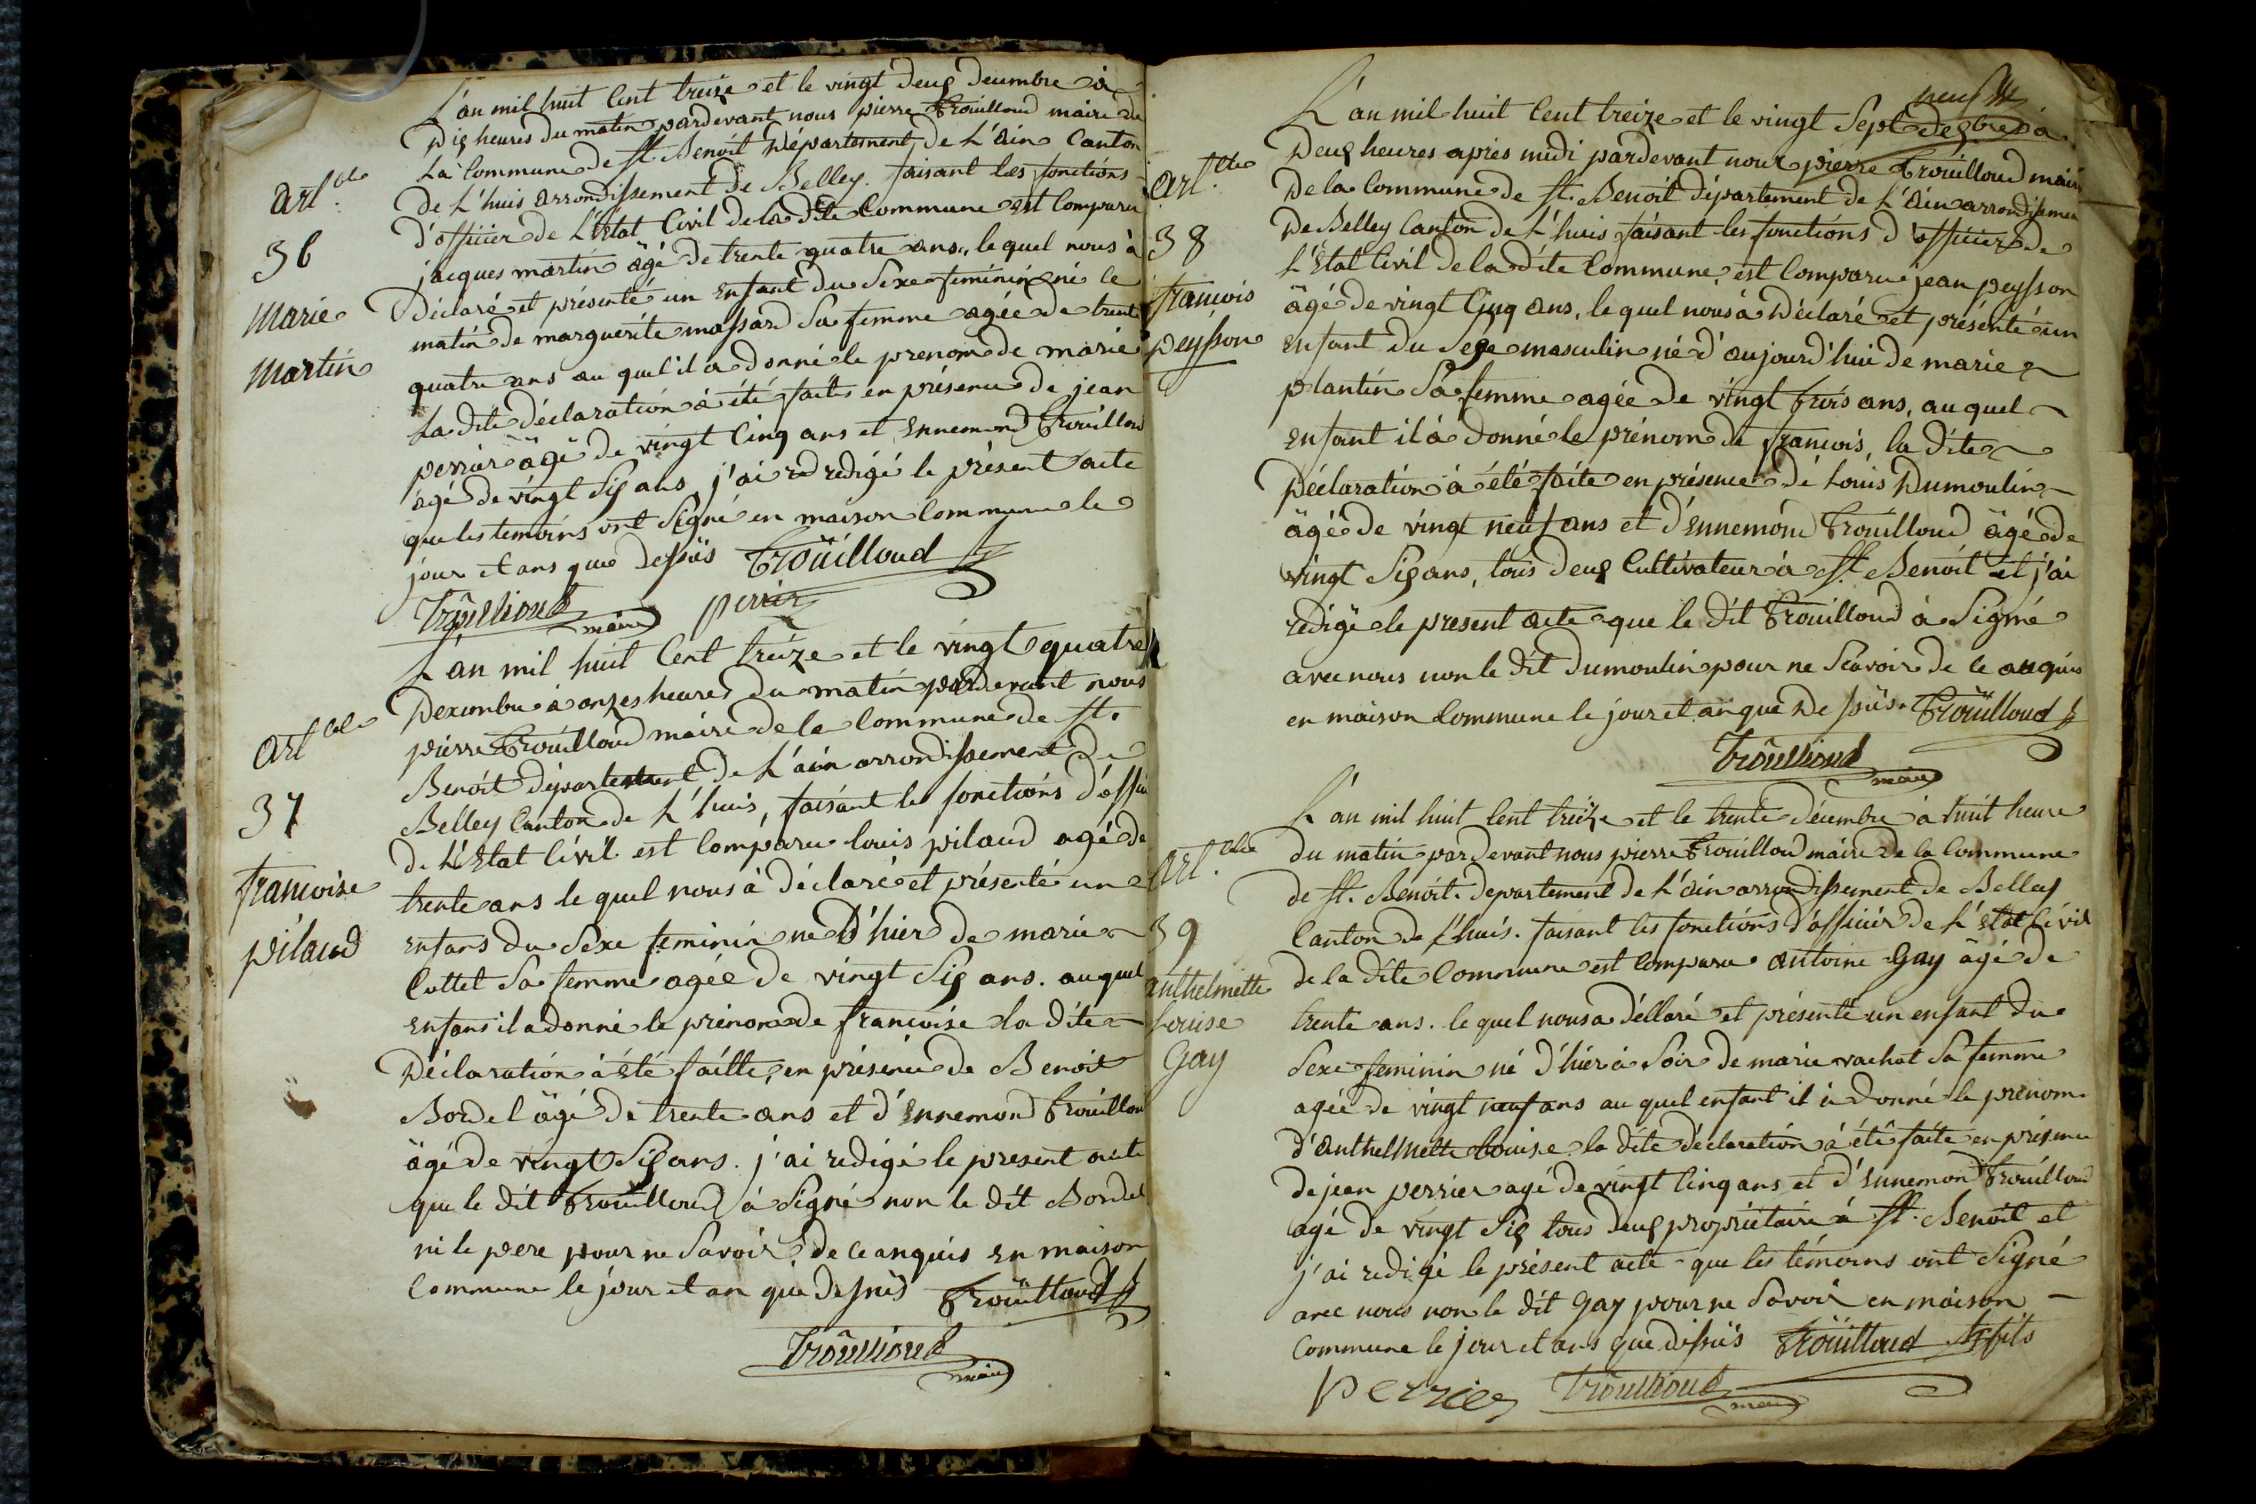 L'an mil huit Cent treize et le vingt deux decembre à
Dix heures du matin pardevant nous pierre Trouilloud maire de
La Commune de St. Benoit Département de L'ain Canton
de L'huis arrondissement de Belley. faisant les fonctions
d'officier de L'Etat Civil de la dite Commune est Comparu
jacques martin âgé de trente quatre ans, le quel nous à
Déclaré et présenté un enfant du Sexe feminin né le
matin de marguerite massard Sa femme agée de trente
quatre ans au quel il a donné le prenom de marie
La dite déclaration à été faite en présence de jean
perrier âgé de vingt Cinq ans et Ennemond Trouilloud
âgé de vingt Six ans j'ai red redigé le présent acte
que les temoins ont Signé en maison Commune le
jour et ans que dessus Trouilloud
Trouilloud maire perrier
art.cle
36
Marie
Martin
L'an mil huit Cent treize et le vingt quatre
Decembre à onzes heures du matin pardevant nous
pierre Trouilloud maire de la Commune de St.
Benoit département de L'ain arrondissement de
Belley Canton de L'huis, faisant les fonctions d'offi
de L'Etat Civil est Comparu louis pilaud agé de
trente ans le quel nous à déclaré et présenté un
enfans du Sexe feminin né D'hier de marie
Cuttet Sa femme agée de vingt Six ans. au quel
enfans il a donné le prénom de francoise la dite
Déclaration à été faitte, en présence de Benoit
Bordel âgé de trente ans et d'Ennemond Trouilloud
âgé de vingt Six ans. j'ai redigé le present acte
que le dit Trouilloud à Signé non le dit Bordel
ni le pere pour ne Savoir de ce anquis en maison
Commune le jour et an que dessus Trouilloud
Trouilloud
maire
artcle
37
francoise
pilaud
neuf
L'an mil huit Cent treize et le vingt Sept dexbre à
Deux heures après midi pardevant nous pierre Trouilloud maire
De la Commune de St. Benoit département de L'ain arrondissemen
De Belley Canton de L'huis faisant les fonctions d'officier de
L'Etat Civil de la dite Commune, est Comparu jean peysson
âgé de vingt Cinq ans, le quel nous à Déclaré et présenté un
enfant du Sexe masculin né d'aujourd'hui de marie
plantin Sa femme agée de vingt trois ans, au quel
enfant il à donné le prénom de francois, la dite
Déclaration à été faite en présence dé Louis Dumoulin
âgé de vingt neuf ans et d'Ennemond Trouilloud âgé de
vingt Six ans, tous deux Cultivateur à St. Benoit et j'ai
redigé le present acte que le dit Trouilloud à Signé
avec nous non le dit dumoulin pour ne Scavoir de ce anquis
en maison Commune le jour et an que dessus. Trouilloud
Trouilloud
maire
art.cle
38
francois
peysson
L'an mil huit Cent treize et le trente décembre à huit heure
du matin par devant nous pierre Trouilloud maire de la Commune
de St. Benoit. departement de L'ain arrondissement de Belley
Canton de L'huis. faisant les fonctions d'officier de L'état Civil
de la dite Commune est Comparu antoine Gay âgé de
trente ans. le quel nous a déllaré et présenté un enfant du
Sexe feminin né d'hier à Soir de marie vachat Sa femme
agée de vingt neuf ans au quel enfant il à donné le prenom
d'anthelmette Louise la dite déclaration à été faite en présence
de jean perrier agé de vingt Cinq ans et d'Ennemond Trouilloud
agé de vingt Six tous deux propriétaire à St. Benoit et
j'ai redigé le présent acte que les témoins ont Signé
avec nous non le dit Gay pour ne Savoir en maison
Commune le jour et ans que dessus Trouilloud fils
perrier Trouilloud
maire
art.cle
39
anthelmette
Louise
Gay